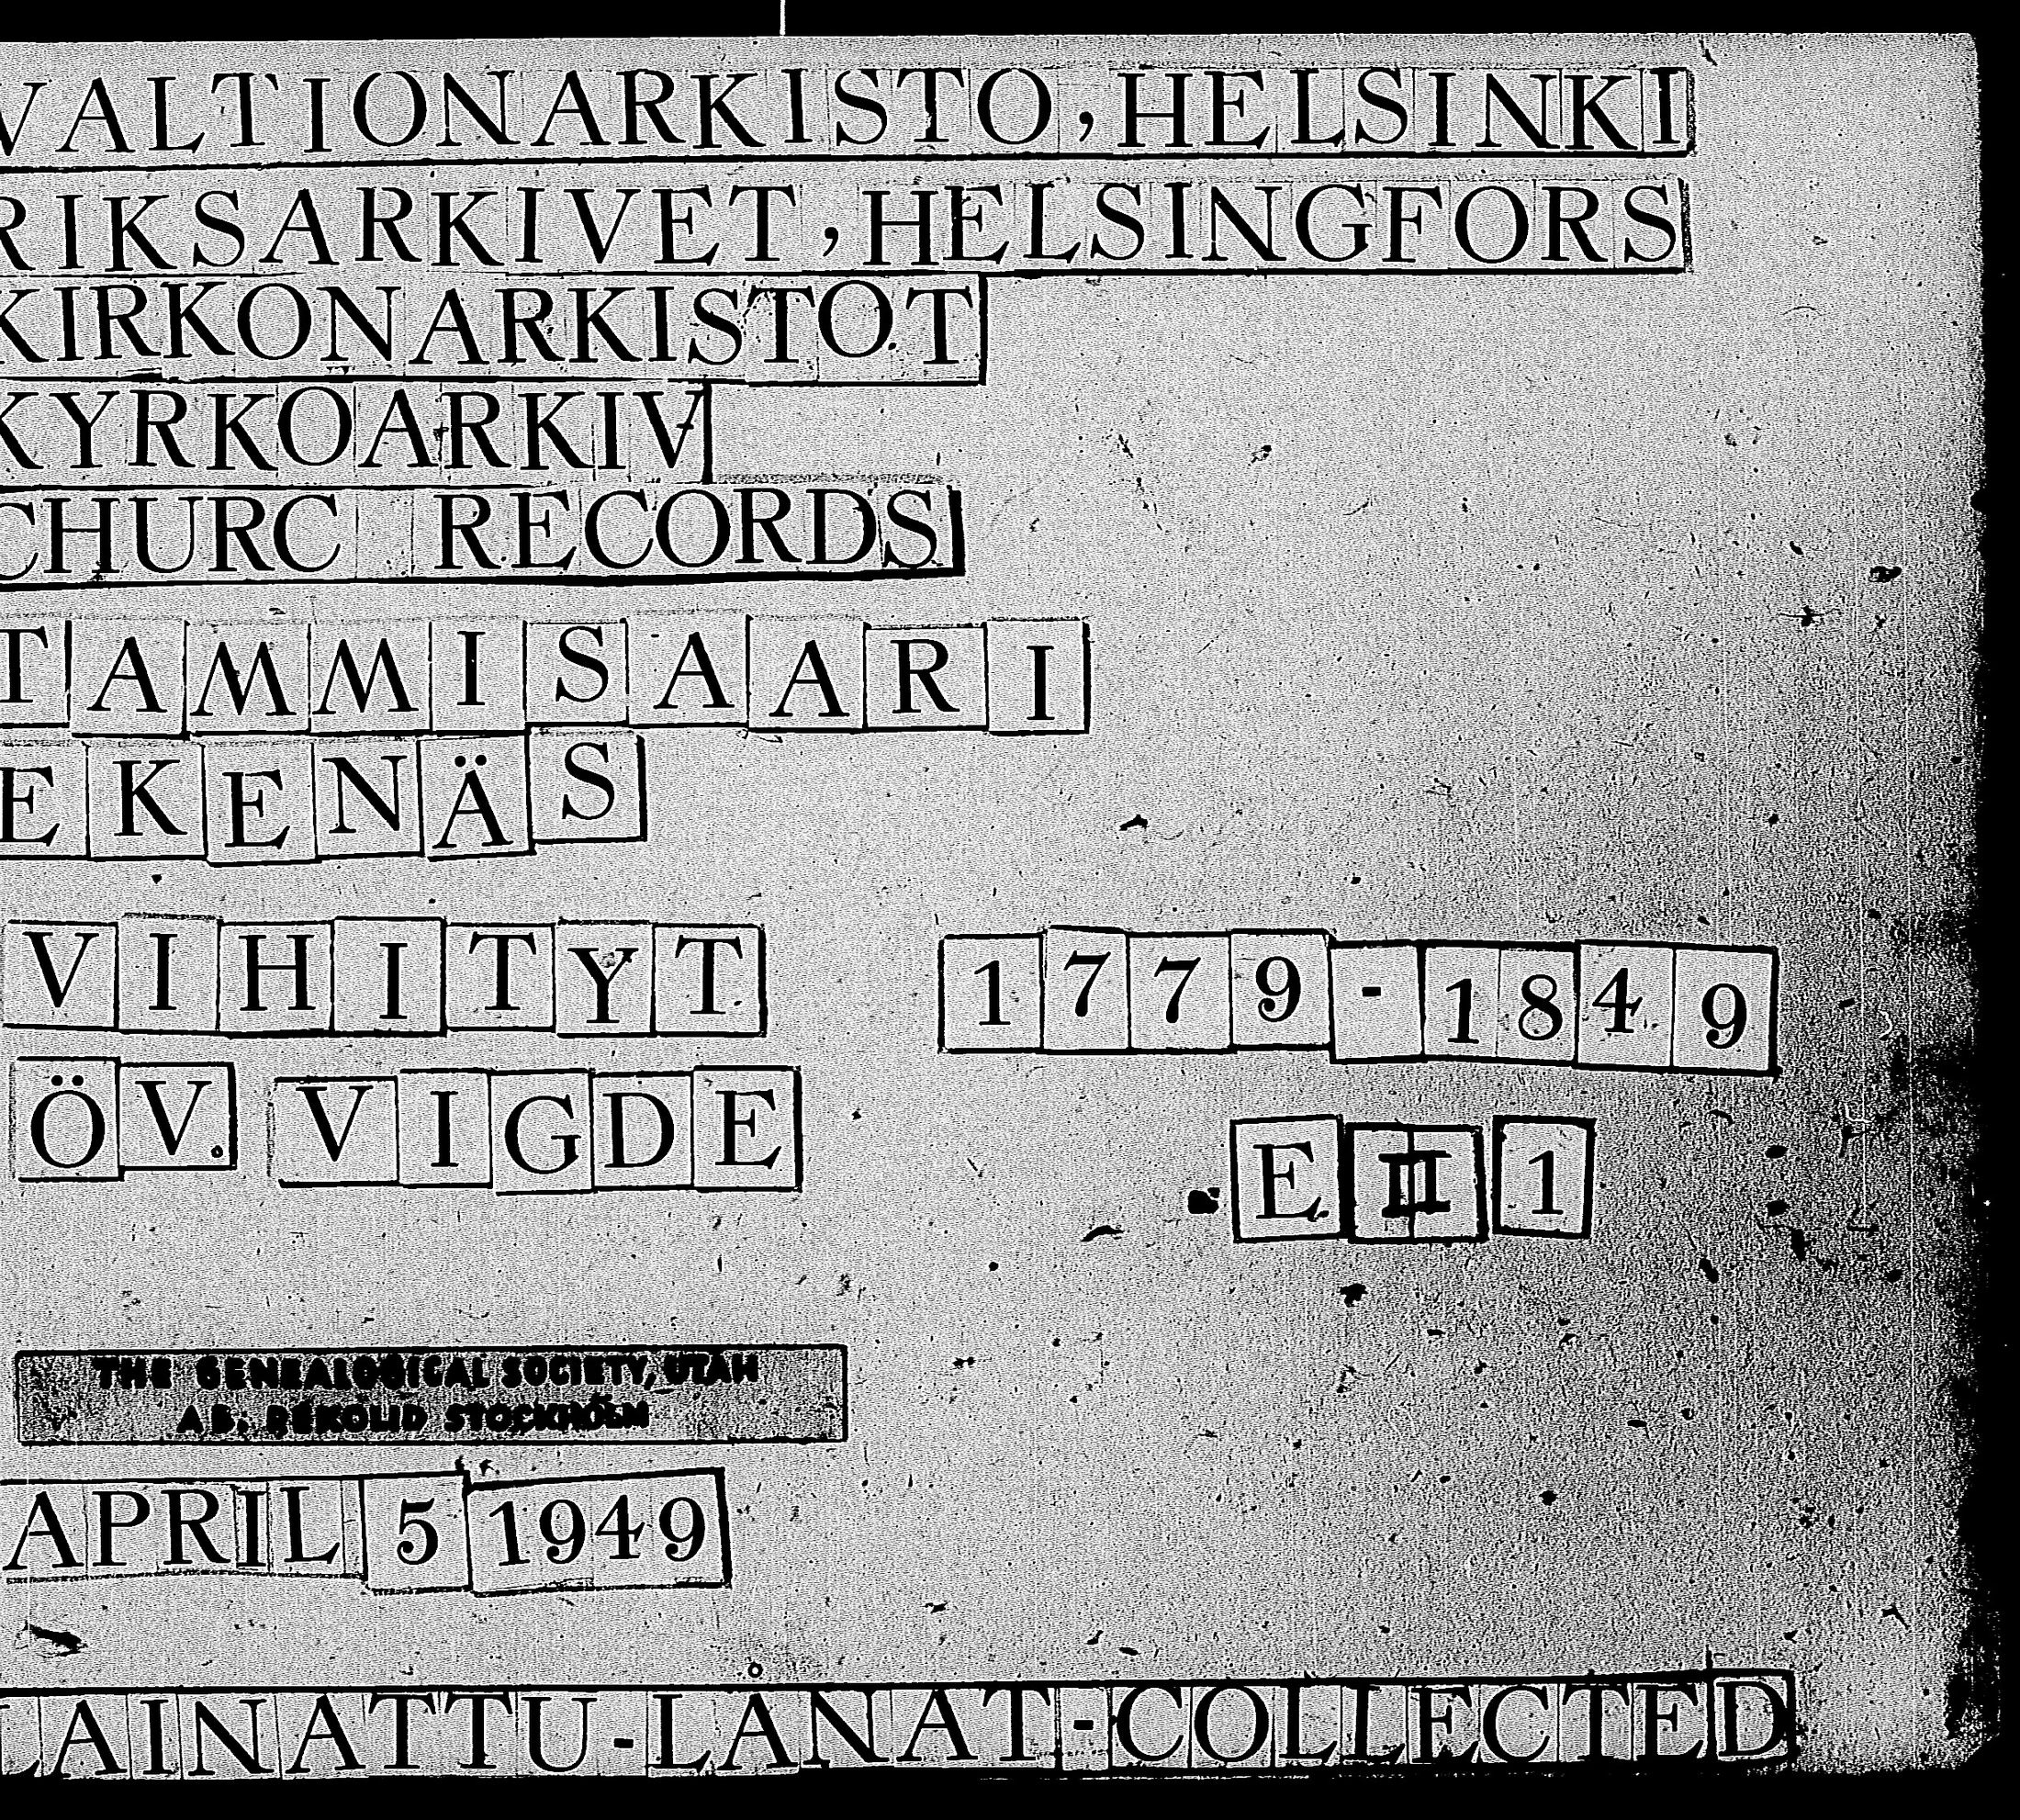 VALTIONARKISTO, HELSINKI
RIKSARKIVET, HELSINGFORS
KIRKONARKISTOT
KYRKOARKIV
CHURC RECORDS
TAMMISAARI
EKENÄS
VIHITYT 1779-1849
ÖV. VIGDE
E II 1
THE GENEALOGICAL SOCIETY, UTAH
AB. REKOLID STOCKHOLM
APRIL 5 1949
LAINATTU-LÅNAT-COLLECTED